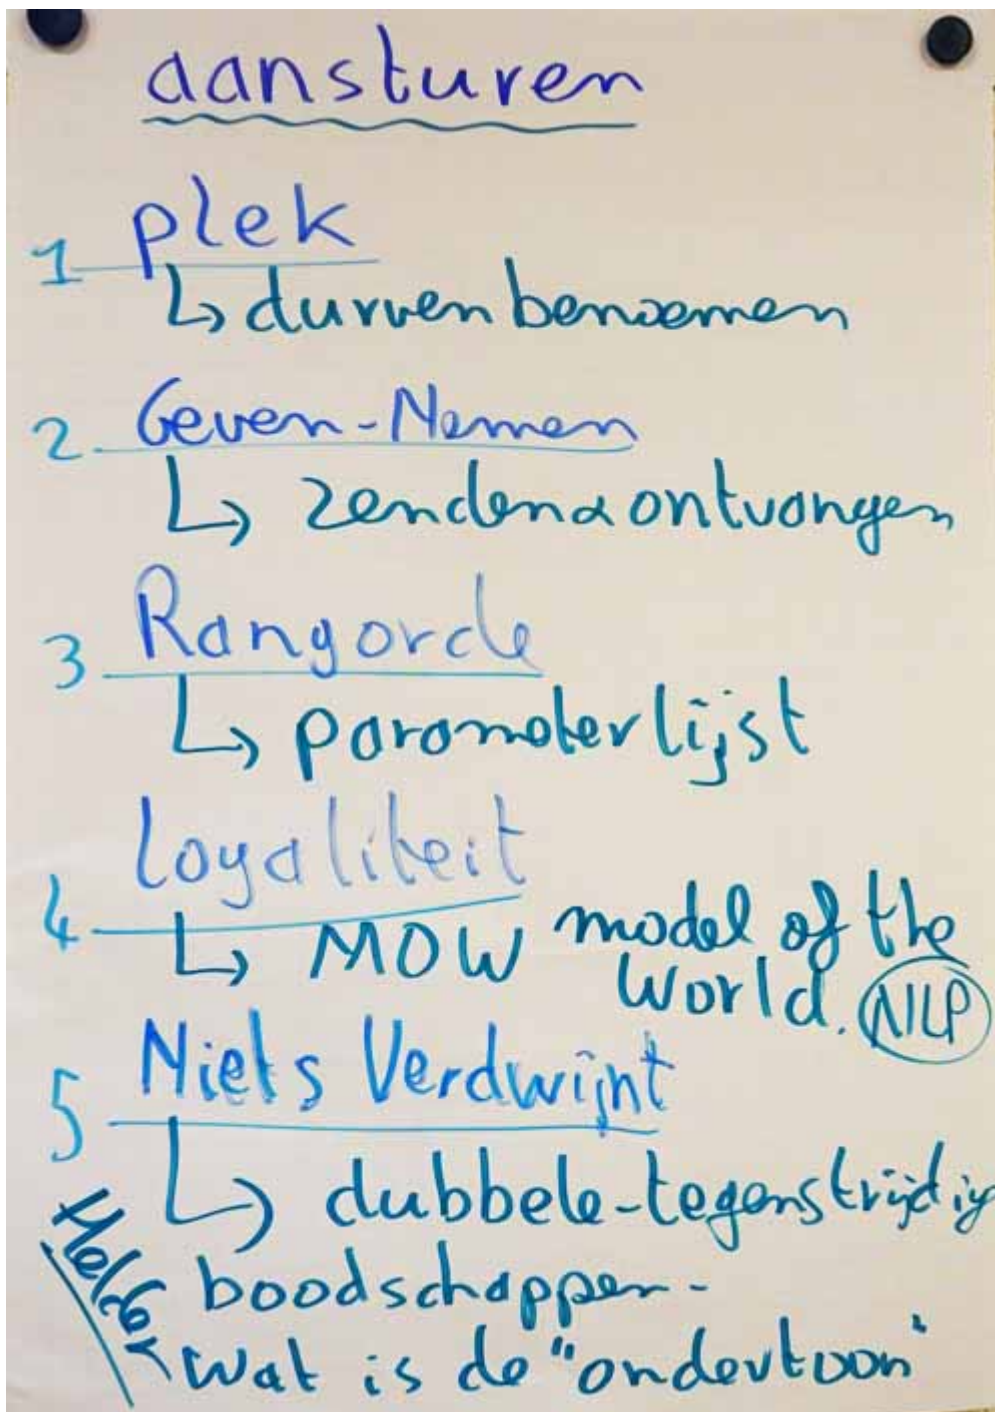 aansturen
1 plek
↳ durven benoemen
2 Geven-Nemen
↳ zenden & ontvangen
3 Rangorde
↳ parameterlijst
4 Loyaliteit
↳ MOW model of the
World. NLP
5 Niets Verdwijnt
↳ dubbele-tegenstrijdig
boodschappen-
Helder
Wat is de "ondertoon"